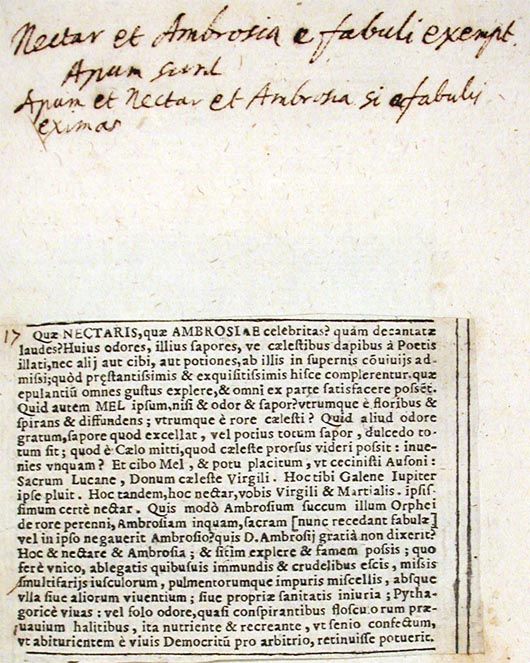 Nectar et Ambrosia e fabuli exempt.
Apum sunt
Apum et Nectar et Ambrosia si e fabulis
eximas
17 Quæ NECTARIS, quæ AMBROSIAE celebritas? quàm decantatæ
laudes? Huius odores, illius sapores, vt cælestibus dapibus à Poetis
illati, nec alij aut cibi, aut potiones, ab illis in supernis cōuiuijs ad-
missi; quòd præstantissimis & exquisitissimis hisce complerentur. quæ
epulantiū omnes gustus explere, & omni ex parte satisfacere possēt.
Quid autem MEL ipsum, nisi & odor & sapor? vtrumque è floribus &
spirans & diffundens; vtrumque è rore cælesti? Quid aliud odore
gratum, sapore quod excellat, vel potius totum sapor, dulcedo to-
tum sit; quod è Cælo mitti, quod cæleste prorsus videri possit: inue-
nies vnquam? Et cibo Mel, & potu placitum, vt cecinisti Ausoni:
Sacrum Lucane, Donum cæleste Virgili. Hoc tibi Galene Iupiter
ipse pluit. Hoc tandem, hoc nectar, vobis Virgili & Martialis. ipsis-
simum certè nectar. Quis modò Ambrosium succum illum Orphei
de rore perenni, Ambrosiam inquam, sacram [nunc recedant fabulæ]
vel in ipso negauerit Ambrosio? quis D. Ambrosij gratiā non dixerit?
Hoc & nectare & Ambrosia; & sitim explere & famem possis; quo
ferè vnico, ablegatis quibusuis immundis & crudelibus escis, missis
multifarijs iusculorum, pulmentorumque impuris miscellis, absque
vlla siue aliorum viuentium; siue propriæ sanitatis iniuria; Pytha-
goricè viuas: vel solo odore, quasi conspirantibus flosculorum præ-
uauium halitibus, ita nutriente & recreante, vt senio confectum,
vt abiturientem è viuis Democritū pro arbitrio, retinuisse potuerit.